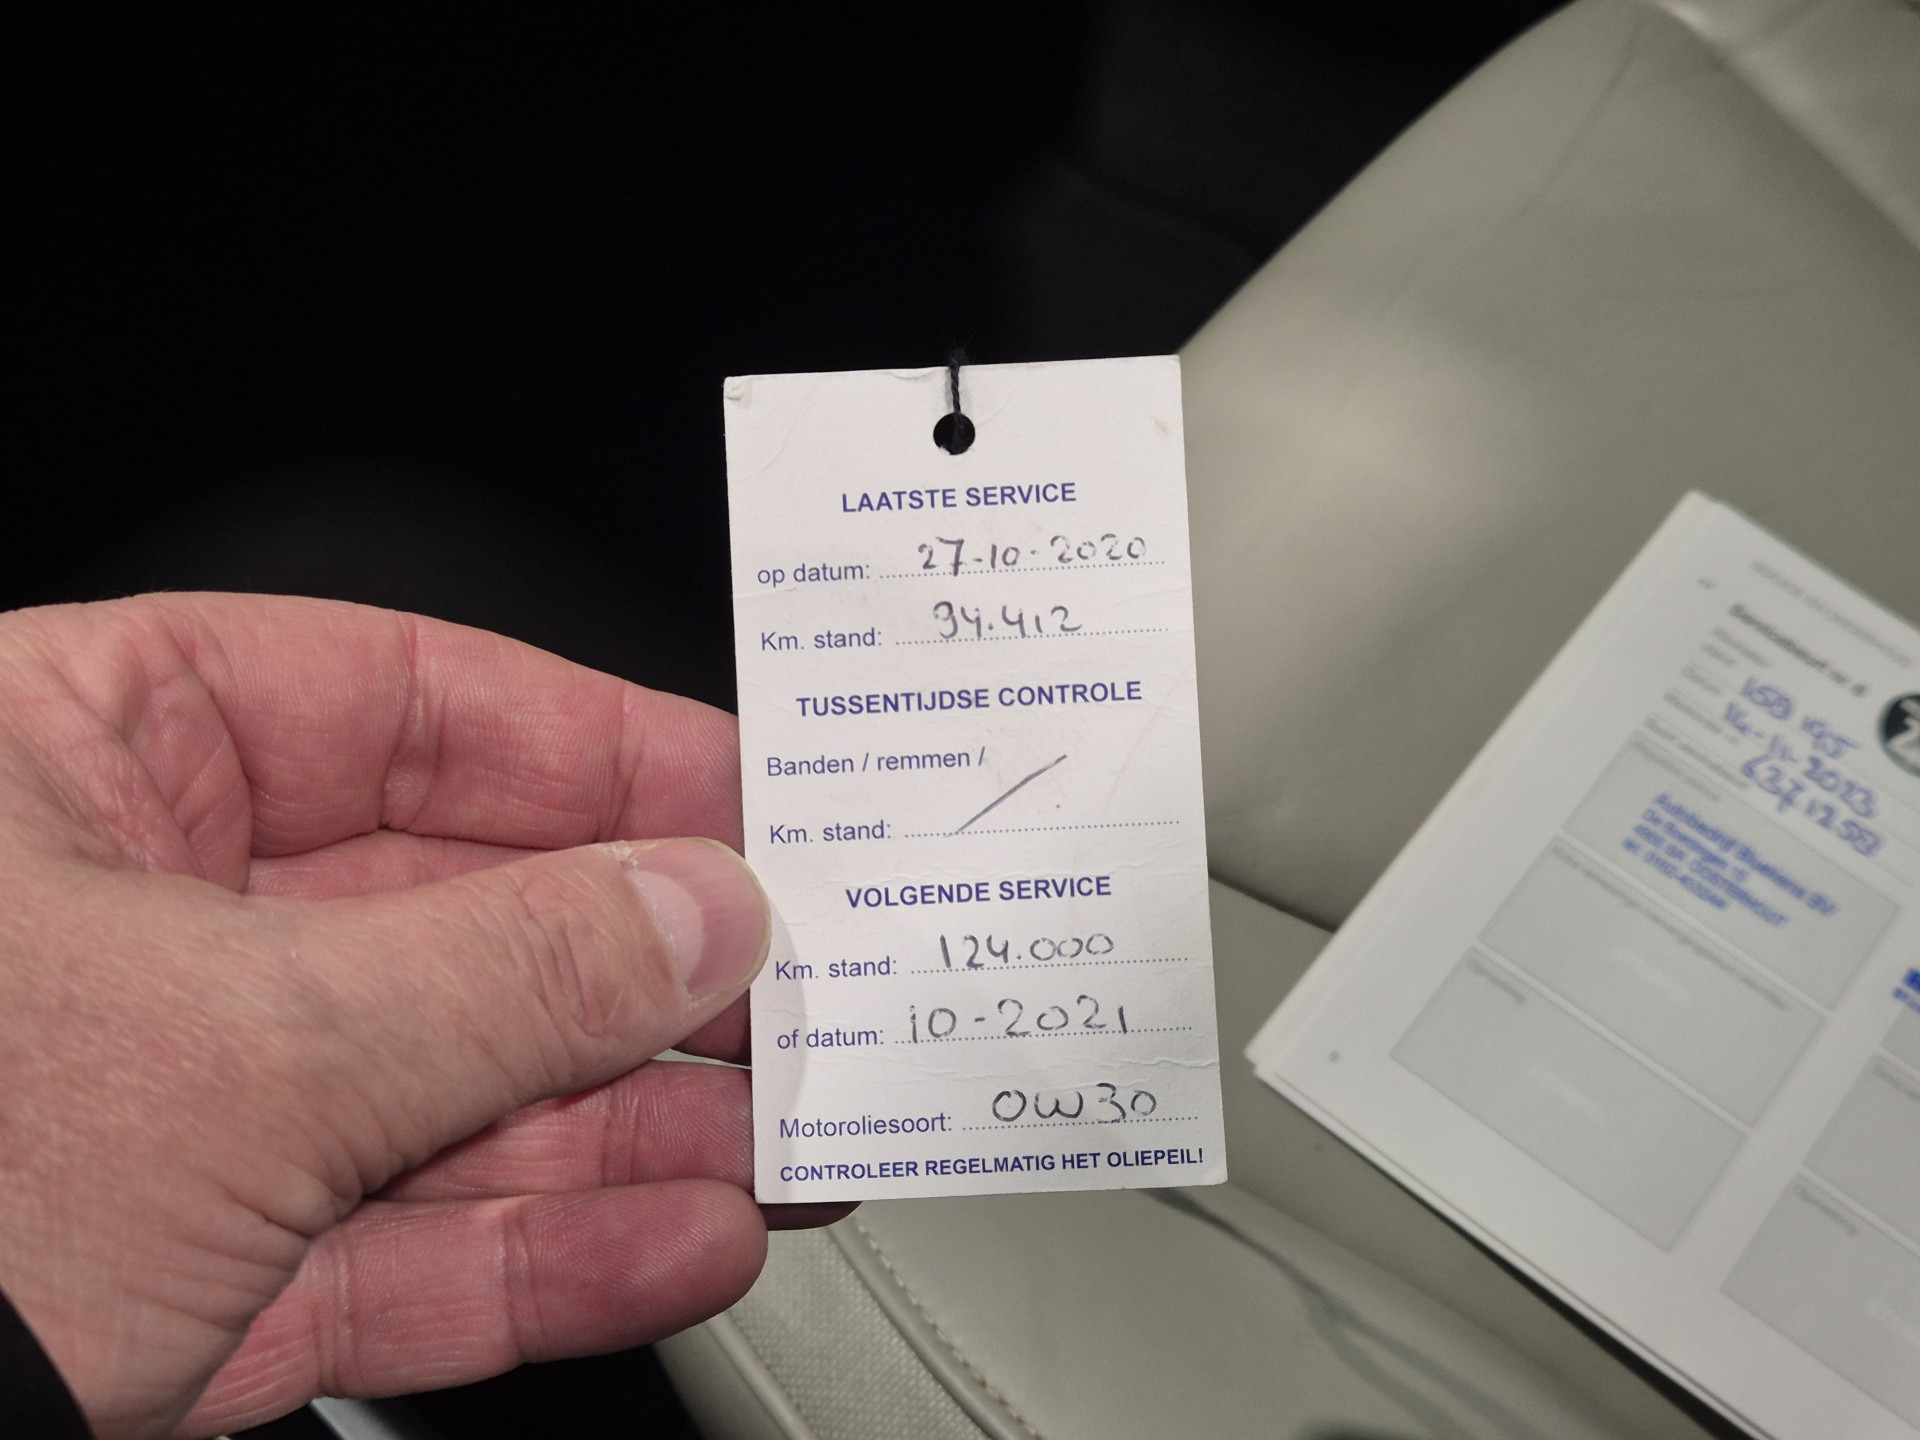 LAATSTE SERVICE
op datum: 27-10-2020
Km. stand: 94.412
TUSSENTIJDSE CONTROLE
Banden / remmen /
Km. stand: /
VOLGENDE SERVICE
Km. stand: 124.000
of datum: 10-2021
Motoroliesoort: 0W30
CONTROLEER REGELMATIG HET OLIEPEIL!
Servicebeurt nr. 6
14-11-2023
Autobedrijf Bluekens BV
OOSTERHOUT